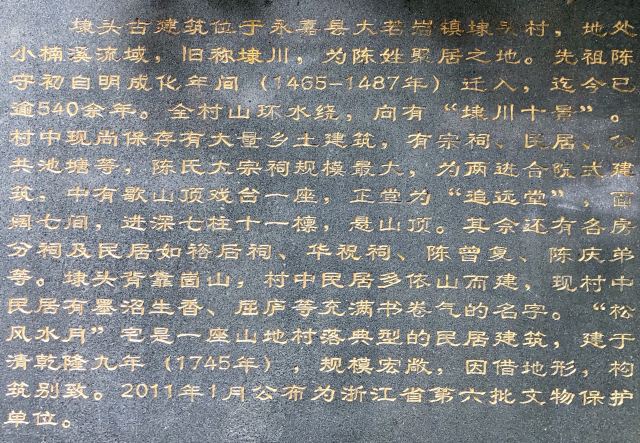 埭头古建筑位于永嘉县大若岩镇埭头村，地处
小楠溪流域，旧称埭川，为陈姓聚居之地。先祖陈
守初自明成化年间（1465-1487年）迁入，迄今已
逾540余年。全村山环水绕，向有“埭川十景”。
村中现尚保存有大量乡土建筑，有宗祠、民居、公
共池塘等，陈氏大宗祠规模最大，为两进合院式建
筑，中有歇山顶戏台一座，正堂为“追远堂”，面
阔七间，进深七柱十一檩，悬山顶。其余还有各房
分祠及民居如裕后祠、华祝祠、陈曾复、陈庆弟
等。埭头背靠崮山，村中民居多依山而建，现村中
民居有墨沼生香、屈庐等充满书卷气的名字。“松
风水月”宅是一座山地村落典型的民居建筑，建于
清乾隆九年（1745年），规模宏敞，因借地形，构
筑别致。2011年1月公布为浙江省第六批文物保护
单位。